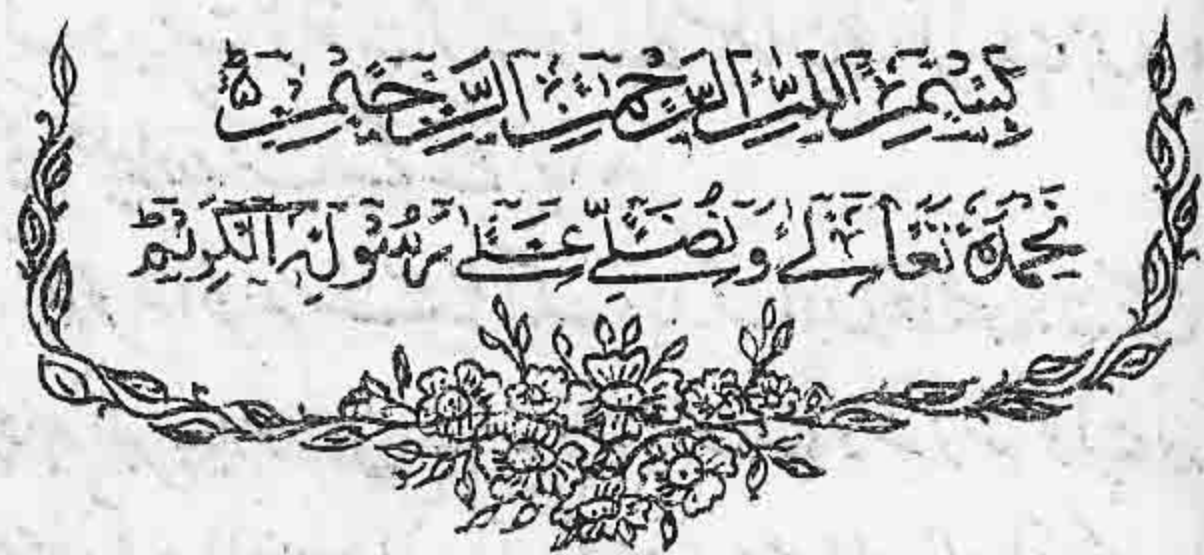 بِسْمِ اللهِ الرَّحْمٰنِ الرَّحِيْمِ ۝
نَحْمَدُهٗ تَعَالٰے وَنُصَلِّے عَلٰے رَسُوْلِهِ الْكَرِيْمِ ؕ